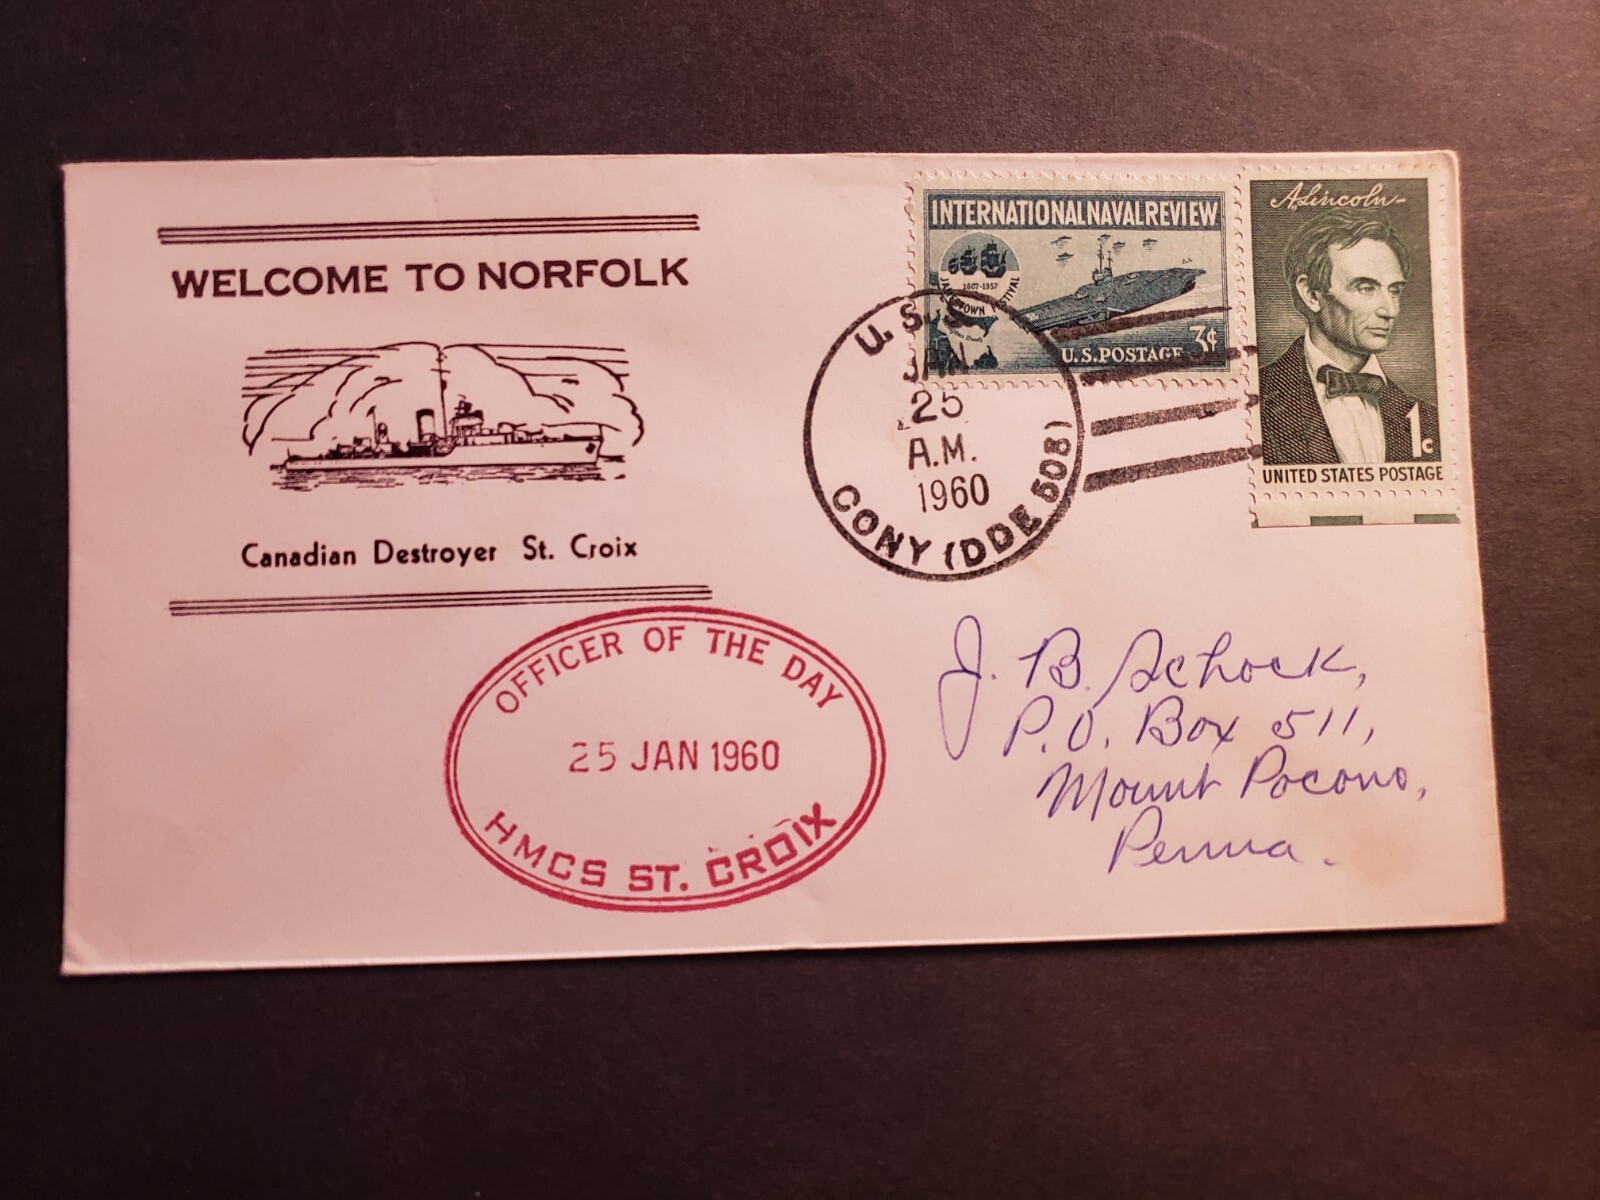 WELCOME TO NORFOLK
Canadian Destroyer St. Croix
INTERNATIONAL NAVAL REVIEW
1607-1957
JAMESTOWN FESTIVAL
U.S. POSTAGE 3¢
A. Lincoln
1c
UNITED STATES POSTAGE
U.S.S.
JAN
25
A.M.
1960
CONY (DDE 508)
OFFICER OF THE DAY
25 JAN 1960
HMCS ST. CROIX
J. B. Schock,
P.O. Box 511,
Mount Pocono,
Penna.